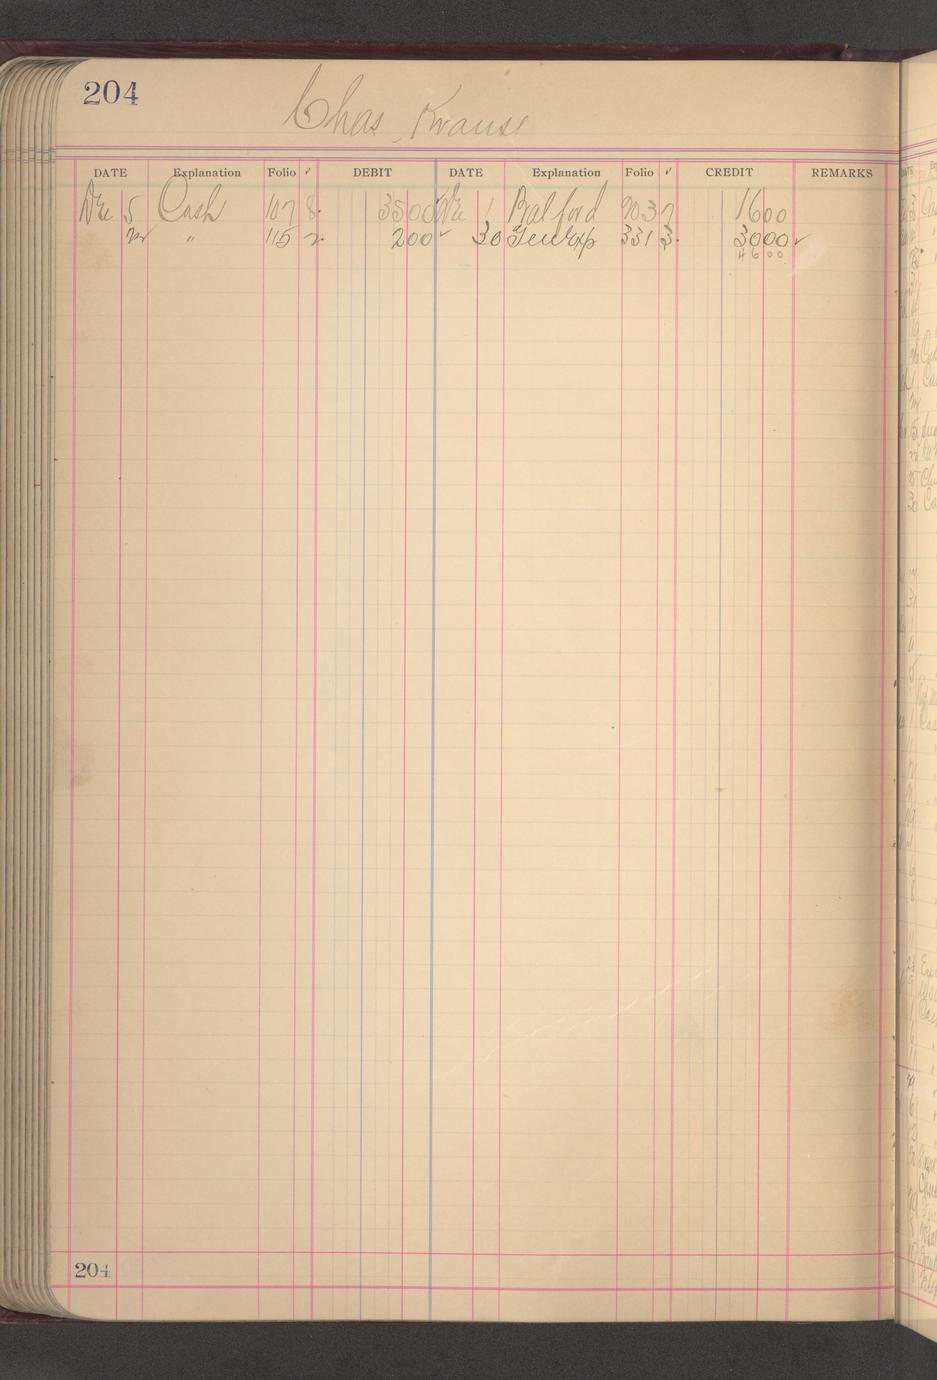 204
Chas Krause
DATE Explanation Folio ✓ DEBIT DATE Explanation Folio ✓ CREDIT REMARKS
Dec 5 Cash 107 8. 3500 Dec 1 903 7 1600
22 " 115 2. 200 ✓ 30 Gen Exp 331 3. 3000 ✓
4600
204